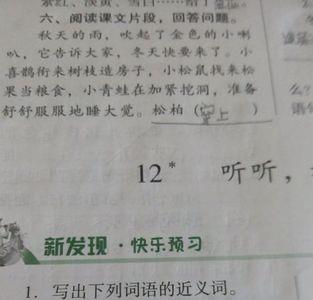 紫红、淡黄、雪白
六、阅读课文片段，回答问题。
秋天的雨，吹起了金色的小喇
叭，它告诉大家，冬天快要来了。小
喜鹊衔来树枝造房子，小松鼠找来松
果当粮食，小青蛙在加紧挖洞，准备
舒舒服服地睡大觉。松柏（穿上）
么？
12* 听听，
新发现·快乐预习
1. 写出下列词语的近义词。